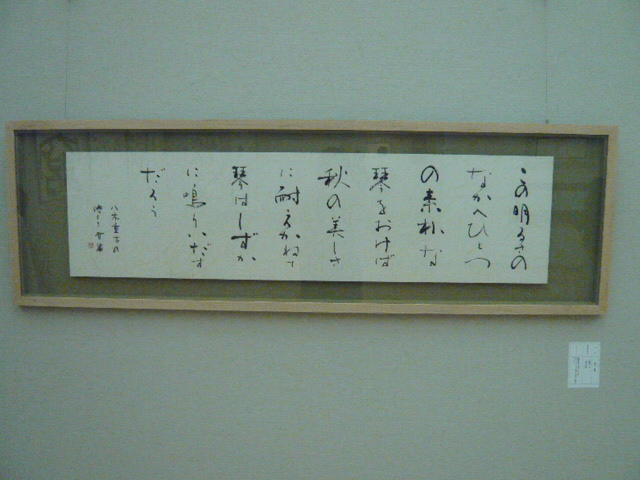 この明るさの
なかへひとつ
の素朴な
琴をおけば
秋の美しさ
に耐えかねて
琴はしずか
に鳴りいだす
だろう
八木重吉の